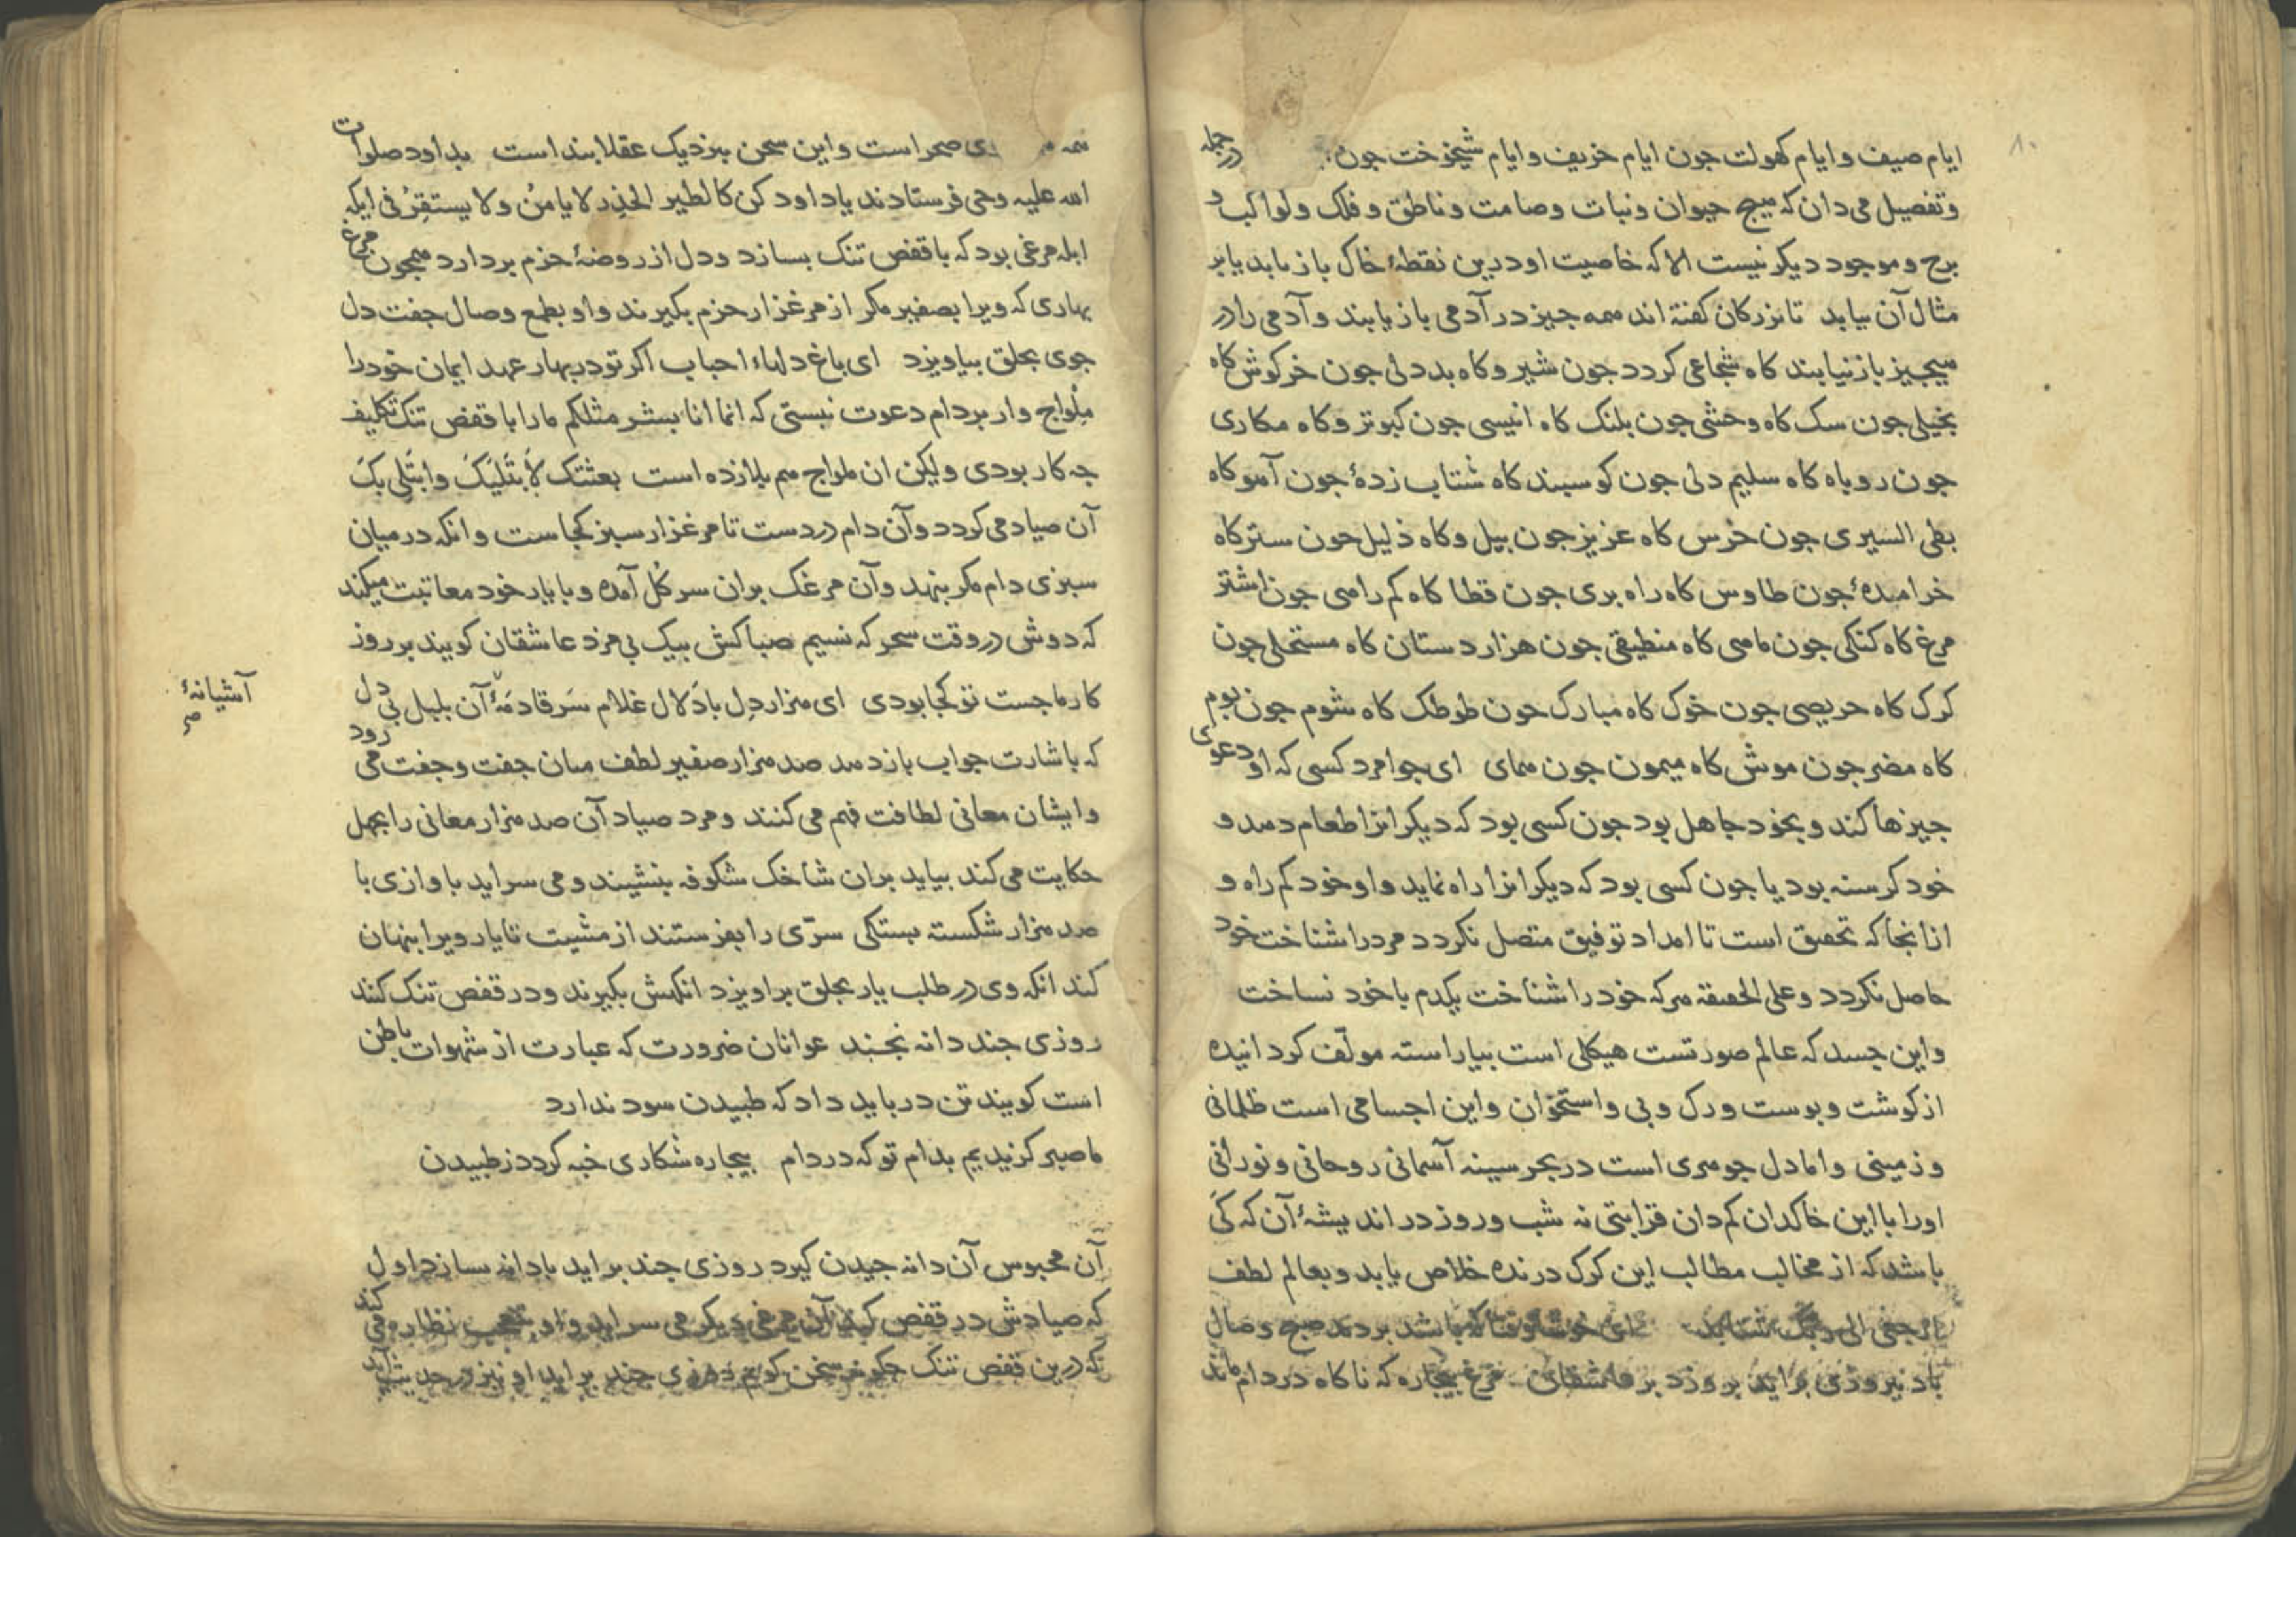 ۸۰
ایام صیف و ایام کهولت جون ایام خریف و ایام شیخوخت جون در جمله
وتفصیل می دان که هیج حیوان ونبات وصامت وناطق و فلک و لواکب و
برج وموجود دیکر نیست الا که خاصیت او درین نقطهٔ خاک باز یابد یا بر
مثال آن بیابد تا بزرکان کفته اند همه جیز در آدمی باز یابند و آدمی را در
هیجیز باز نیابند کاه شجاعی کردد جون شیر و کاه بددلی جون خرکوش کاه
بخیلی جون سک کاه وحشی جون بلنک کاه انیسی جون کبوتر وکاه مکاری
جون روباه کاه سلیم دلی جون کوسبند کاه شتاب زدهٔ جون آهو کاه
بطی السیری جون خرس کاه عزیز جون بیل وکاه ذلیل جون ستر کاه
خرامیدهٔ جون طاوس کاه راه بری جون قطا کاه کم راهی جون اشتر
مرغ کاه کنکی جون ماهی کاه منطیقی جون هزاردستان کاه مستحلی جون
کرک کاه حریصی جون خوک کاه مبارک جون طوطک کاه شوم جون بوم
کاه مضر جون موش کاه میمون جون همای ای جوامرد کسی که او دعوی
جیزها کند و بخود جاهل بود جون کسی بود که دیکرانرا طعام دهد و
خود کرسنه بود یا جون کسی بود که دیکرانرا راه نماید واو خود کم راه و
ازانجا که تحقیق است تا امداد توفیق متصل نکردد مرد را شناخت خود
حاصل نکردد وعلی الحقیقة هرکه خود را شناخت یکدم با خود نساخت
واین جسد که عالم صورتست هیکلی است بیاراسته مولّف کردانیده
از کوشت وبوست ورک وبی واستخوان واین اجسامی است ظلمانی
وزمینی واما دل جوهری است در بحر سینه آسمانی روحانی ونورانی
اورا با این خاکدان کم دان قرابتی نه شب وروز در اندیشهٔ آن که کی
باشد که از مخالب مطالب این کرک درنده خلاص یابد وبعالم لطف
ارجعی الی ربک شتابد ای خوشا وقتا که باشد بردمد صبح وصال
باد نیروزی براید بروزد بر عاشقان مرغ بیجاره که ناکاه در دام ماند
همه صحراست واین سخن بنزدیک عقلا بند است بداود صلوات
الله علیه وحی فرستادند یا داود کن کالطیر الحذر لا یامنُ ولا یستقرُ فی ایکه
ابله مرغی بود که با قفص تنک بسازد ودل از روضهٔ حزم بردارد همجون مرغ
بهاری که ویرا بصفیر مکر از مرغزار حزم بکیرند واو بطمع وصال جفت دل
جوی بحلق بیاویزد ای باغ دلهاء احباب اکر تو در بهار عهد ایمان خود را
ملواج وار بر دام دعوت نبستی که انما انا بشر مثلکم ما را با قفص تنک تکلیف
جه کار بودی ولیکن ان ملواج هم بلازده است بعثتک لِأَبتَلیَکَ وابتلی بکَ
آن صیاد می کردد وآن دام در دست تا مرغزار سبز کجاست وانکه در میان
سبزی دام مکر بنهد وآن مرغک بران سر کُل آمده وبا یار خود معاتبت میکند
که دوش در وقت سحر که نسیم صبا کش بیک بی مزد عاشقان کویند بر روز
کار ما جست تو کجا بودی ای هزار دل با دَلال غلام سَر قادمَهٔ آن بلبل بی دل
آشیانهٔ
صح
که باشارت جواب باز دهد صد هزار صفیر لطف میان جفت وجفت می رود
وایشان معانی لطافت فهم می کنند ومرد صیاد آن صد هزار معانی را بجهل
حکایت می کند بیاید بران شاخک شکوفه بنشیند ومی سراید باوازی با
صد هزار شکسته بستکی سرّی را بفرستند از مشیت تا یار ویرا بنهان
کند انکه وی در طلب یار بحلق براویزد انکهش بکیرند ودر قفص تنک کنند
روزی جند دانه نجند عوانان ضرورت که عبارت از شهوات باطن
است کویند تن در باید داد که طبیدن سود ندارد
ما صبر کزیدیم بدام تو که در دام بیجاره شکاری خبه کردد ز طبیدن
آن محبوس آن دانه جیدن کیرد روزی جند براید با دانه بسازد اول
که صیادش در قفص کند آن مرغی دیکر می سراید واو بتعجب نظاره می کند
که درین قفص تنک جکونه سخن کویم روزی جند براید او نیز در حدیث آید